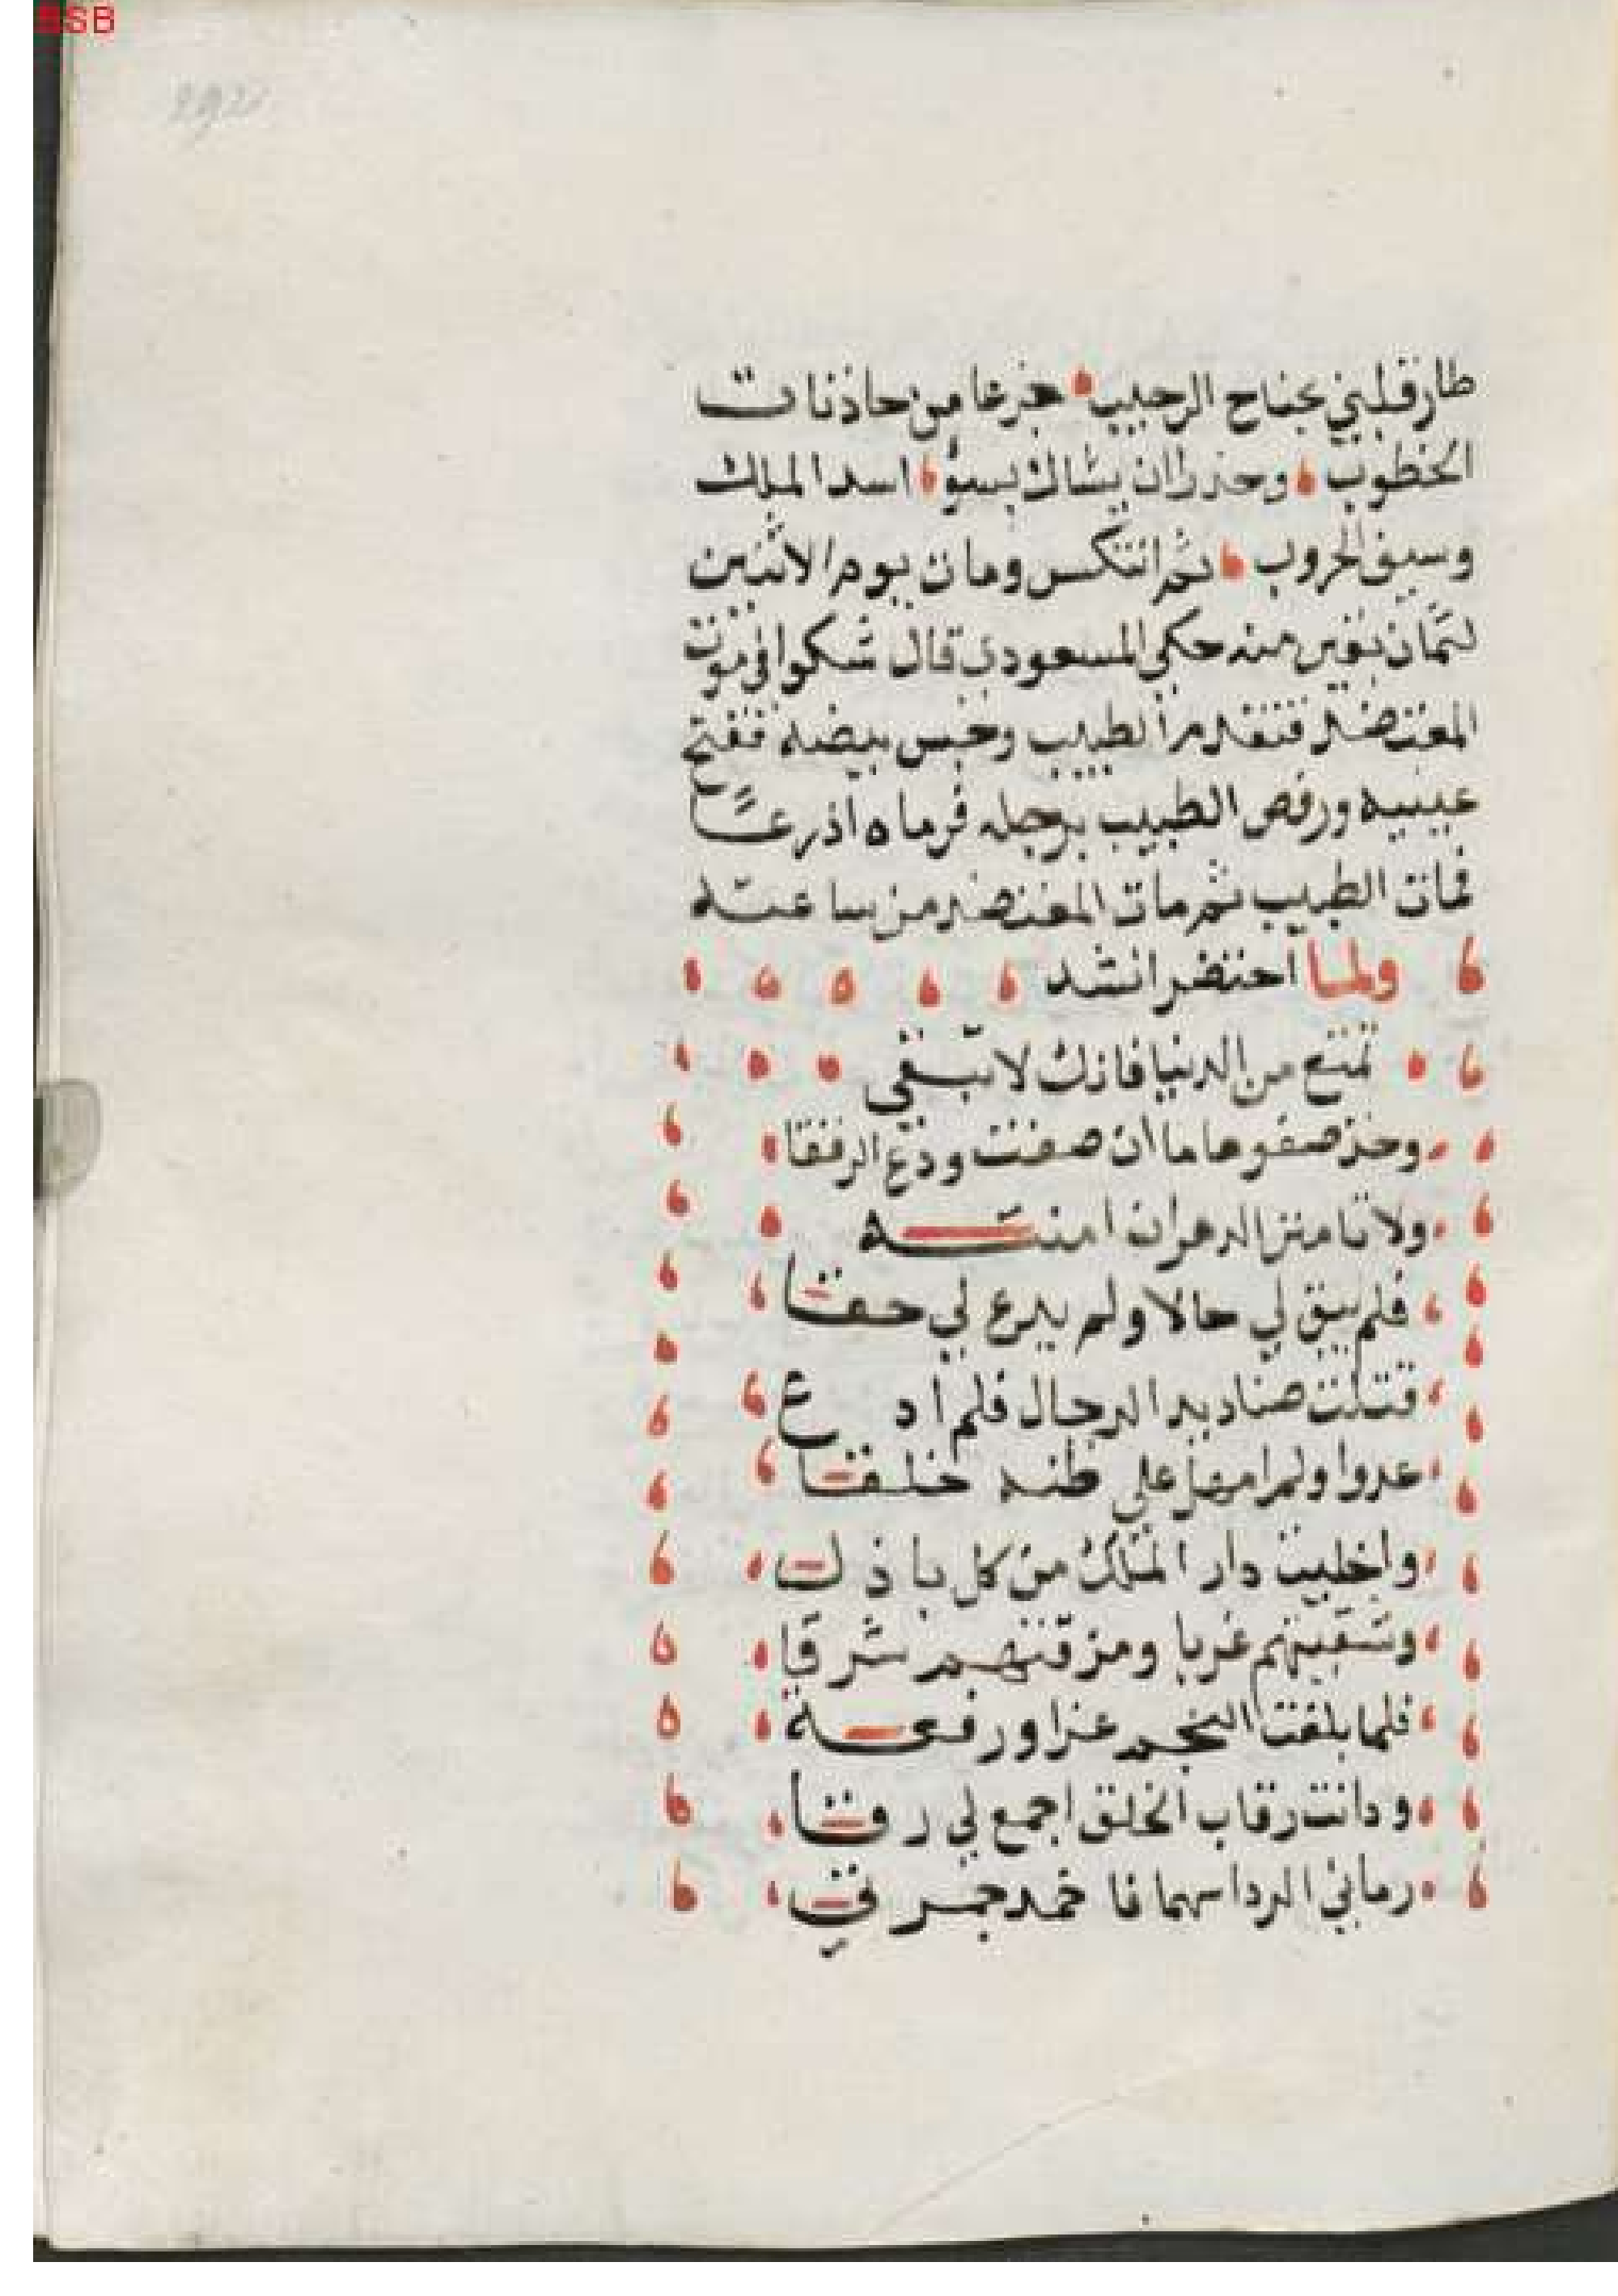 BSB
طار قلبي بجناح الوجيب جزعا من حادثات
الخطوب وحذرا ان يشاك بسوء اسد الملك
وسيف الحروب ثم انتكس ومات يوم الاثنين
لثمان بقين منه حكى المسعودي قال شكوا في موت
المعتضد فتقدم الطبيب وجس نبضه ففتح
عينيه ورفص الطبيب برجله فرماه اذرعًا
فمات الطبيب ثم مات المعتضد من ساعته
ولما احتضر انشد
تمتع من الدنيا فانك لا تبقى
وخذ صفوها ما ان صفت ودع الرنقا
ولا تامنن الدهر ان امنته
فلم يبق لي حالا ولم يدع لي حقا
قتلت صناديد الرجال فلم ادع
عدوا ولم امهل على ظنه خلقا
واخليت دار الملك من كل باذل
وشتتهم غربا ومزقتهم شرقا
فلما بلغت النجم عزا ورفعة
ودانت رقاب الخلق اجمع لي رقا
رماني الردا سهما فاخمد جمرتي